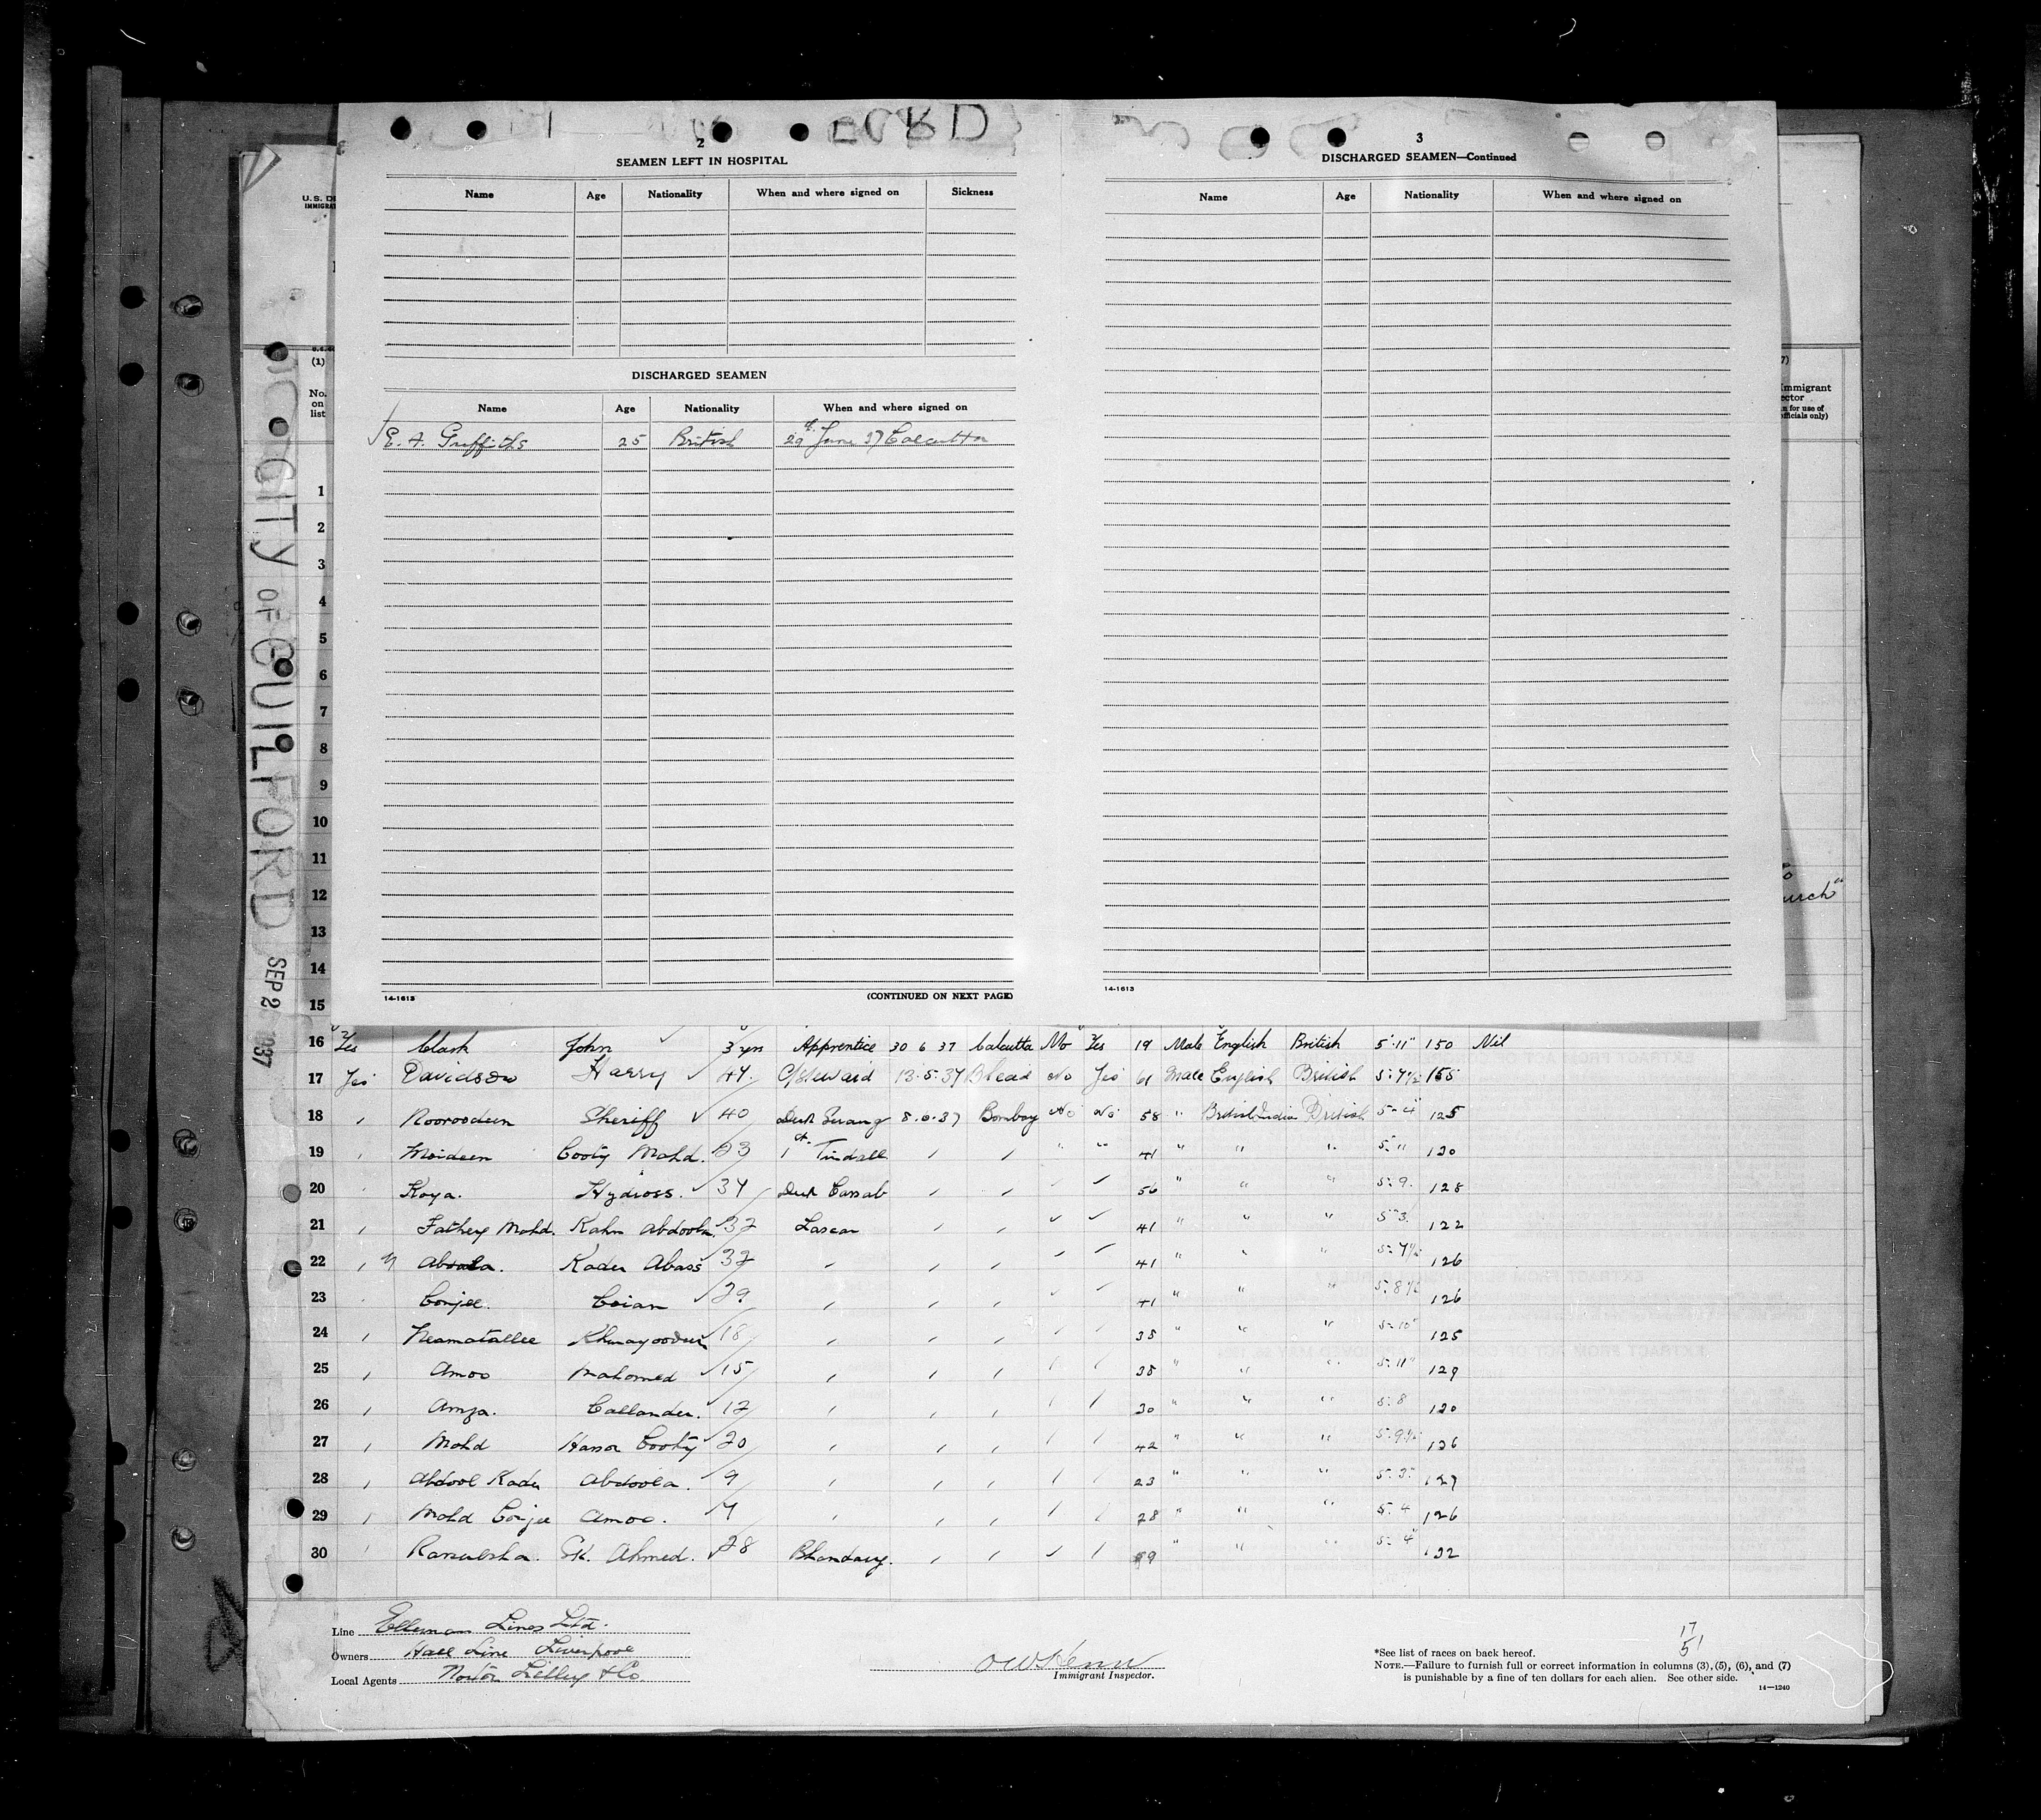 2
SEAMEN LEFT IN HOSPITAL
Name Age Nationality When and where signed on Sickness
DISCHARGED SEAMEN
Name Age Nationality When and where signed on
E. A. Griffiths 25 British 29th June 37 Calcutta
14-1613 (CONTINUED ON NEXT PAGE)
3
DISCHARGED SEAMEN—Continued
Name Age Nationality When and where signed on
14-1613
U.S. DE
IMMIGRAT
(1)
No. on list
7)
Immigrant
ector
n for use of
officials only)
urch"
CITY OF GUILFORD SEP 2 1937
1
2
3
4
5
6
7
8
9
10
11
12
13
14
15
16 Yes Clark John 3 yrs Apprentice 30 6 37 Calcutta No Yes 19 Male English British 5'11" 150 Nil
17 Yes Davidson Harry 44 C/Steward 13.5.37 B'head No Yes 61 Male English British 5-7½ 155
18 " Nooroodeen Sheriff 40 Deck Serang 8.6.37 Bombay No No 58 " British Indian British 5-4" 125
19 " Moideen Cooty Mohd. 23 1st Tindall " " " " 41 " " " 5-11 130
20 " Koya. Hydross. 34 Deck Cassab " " " " 56 " " " 5-9. 128
21 " Fathey Mohd. Kahn Abdoola. 32 Lascar " " " " 41 " " " 5-3. 122
22 " Abdula. Kader Abass 32 " " " " " 41 " " " 5-7½ 126
23 " Conjee. Coian 29 " " " " " 41 " " " 5-8½ 126
24 " Neamatallee 18 " " " " " 35 " " " 5-10" 125
25 " Amoo Mahomed 15 " " " " " 38 " " " 5-11" 129
26 " Amza. Callander. 12 " " " " " 30 " " " 5-8 120
27 " Mohd Hassa Cooty 20 " " " " " 42 " " " 5-9½ 126
28 " Abdool Kader Abdoola. 9 " " " " " 23 " " " 5-3. 127
29 " Mohd Conjee Amoo. 7 " " " " " 28 " " " 5-4 126
30 " SK. Ahmed. 28 Bhandary. " " " " 59 " " " 5-4" 132
Line Ellerman Lines Ltd.
Owners Hall Line Liverpool
Local Agents Norton Lilley & Co.
Immigrant Inspector.
17
51
*See list of races on back hereof.
NOTE.—Failure to furnish full or correct information in columns (3), (5), (6), and (7)
is punishable by a fine of ten dollars for each alien. See other side.
14—1240